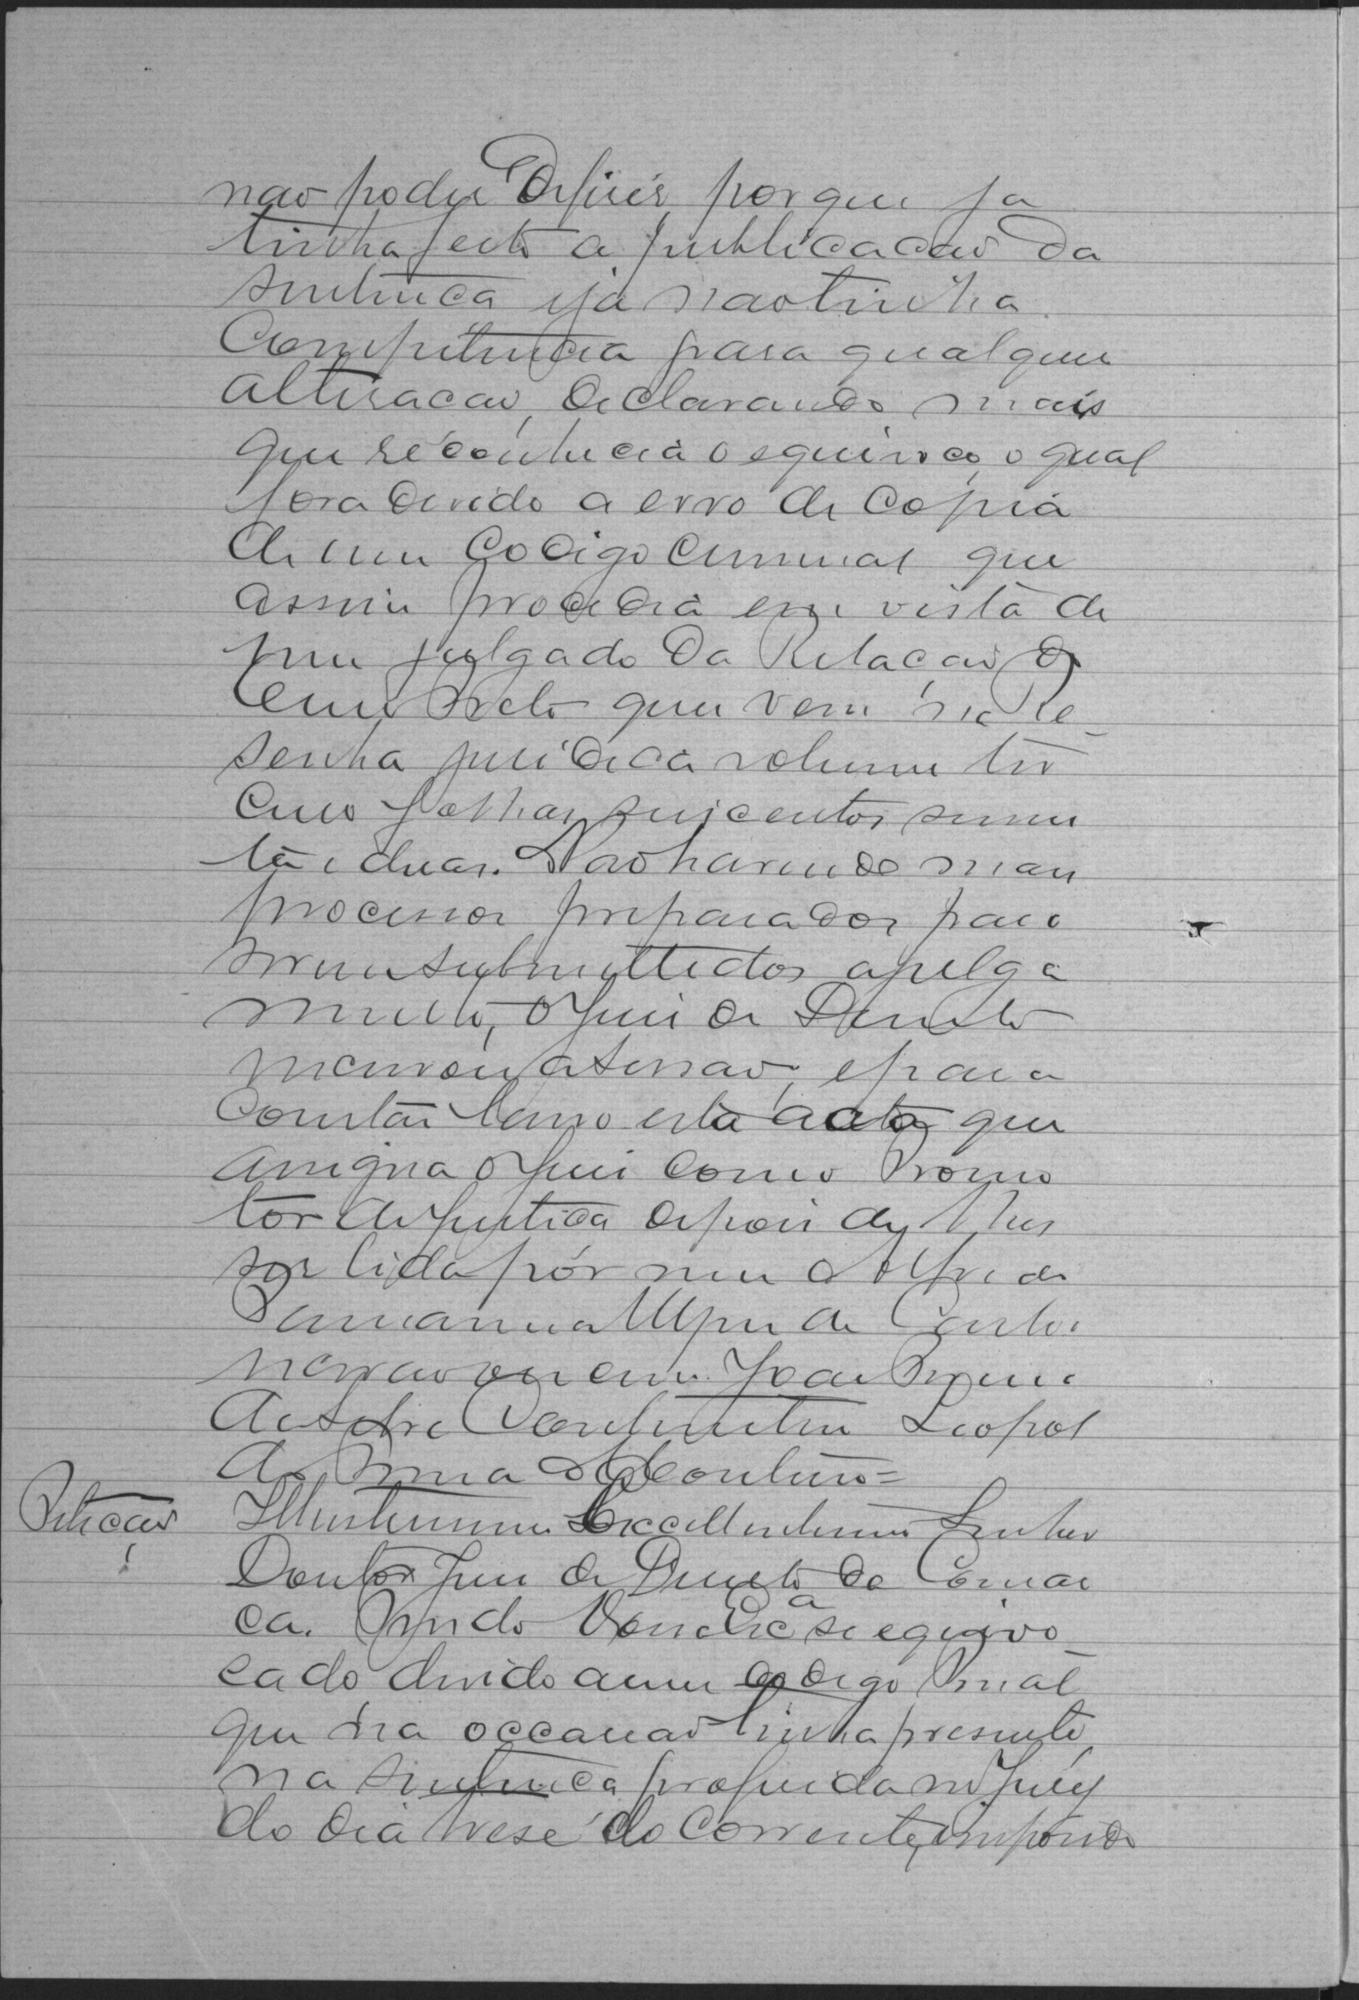 não poder deferir, porque ja
tinha feito a publicacao da
sentença e já nao tinha
Competencia para qualquer
alteracao, declarando mais
que reconhecia o equivoco, o qual
fora devido a erro de copia
de um Codigo Criminal que
assim procedia em vista de
um julgado da Relacao de
Ouro Preto que vem na Re-
senha juridica volume ter
ceiro folhas seiscentos secen
ta e duas. Nao havendo mais
processos preparados para
serem submettidos a julga
mento, o Juiz de Direito
encerrou a sessao, e para
constar lavro esta acta que
assigna o Juiz como Promo
tor de Justica depois de lhes
ser lida por mim Alfredo
escrivao que escrevi. Joao
Leopol
do
Peticao
Illustrissimo Excellentissimo Senhor
Doutor Juiz de Direito da Comar
ca. Tendo Vossa Excia se equivo
cado devido a um codigo Penal
que na occasiao tinha presente,
na sentença proferida no Jury
do dia trese do corrente, impondo